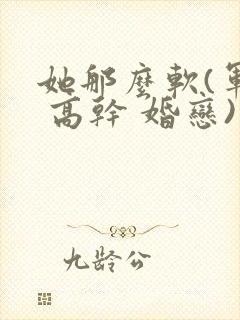 她那麼軟(軍
高幹 婚戀)
九龄公